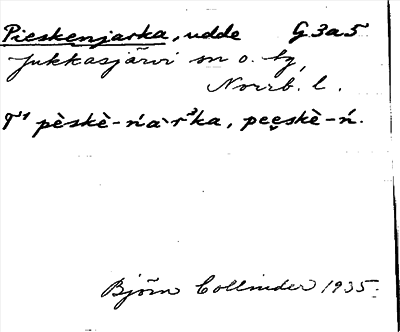 Pieskenjarka, udde G3a5
Jukkasjärvi sn o. tg,
Norrb. l.
pèskè-ńàr³ka, peẹskè-ń.
Björn Collinder 1935.